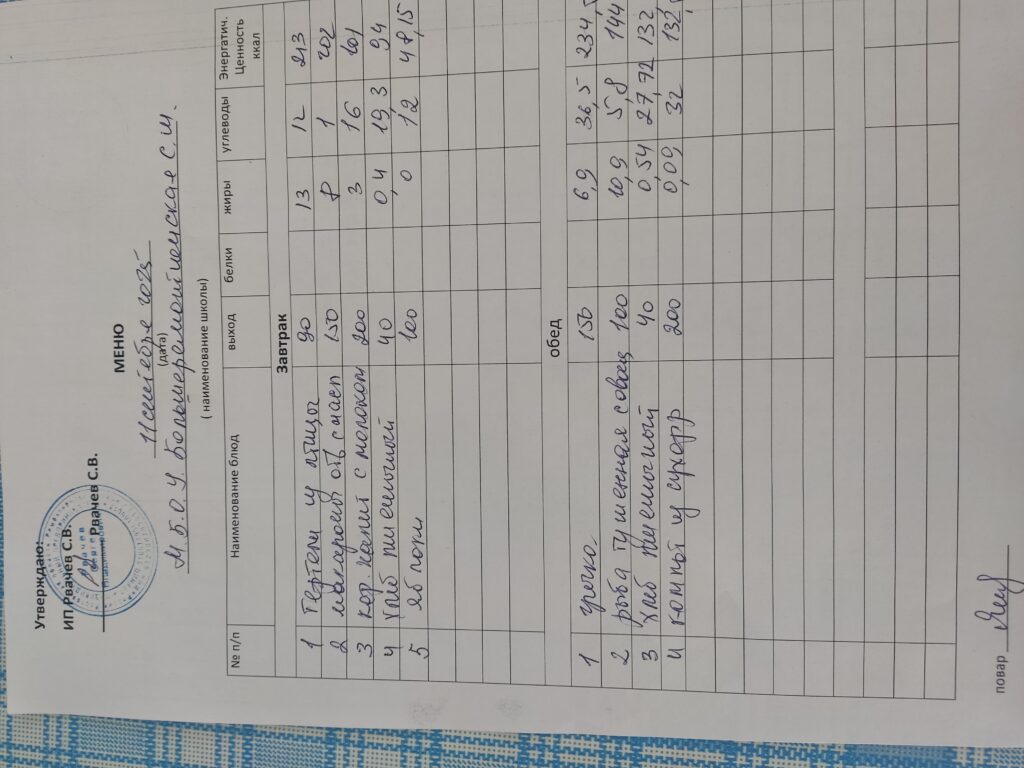 Утверждаю:
ИП Рвачев С.В.
Рвачев С.В.
МЕНЮ
11 сентября 2025
(дата)
М.Б.О.У. Большеремонтненская С.Ш.
( наименование школы)
№ п/п Наименование блюд выход белки жиры углеводы Энергатич. Ценность ккал
Завтрак
1 Тефтели из птицы 90 13 12 213
2 макароны отв с масл 150 8 1 202
3 кор. напит с молоком 200 3 16 101
4 Хлеб пшеничный 40 0,4 19,3 94
5 яблоки 100 0 12 48,15
обед
1 гречка 150 6,9 36,5 234,
2 рыба тушенная с овощ 100 10,9 5,8 144
3 Хлеб пшеничный 40 0,54 27,72 132,
4 компот из сухофр 200 0,09 32 132,
повар